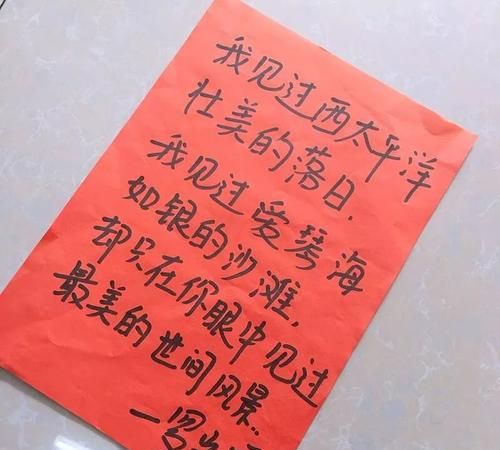 我见过西太平洋
壮美的落日，
我见过爱琴海
如银的沙滩，
却只在你眼中见过
最美的世间风景.
一